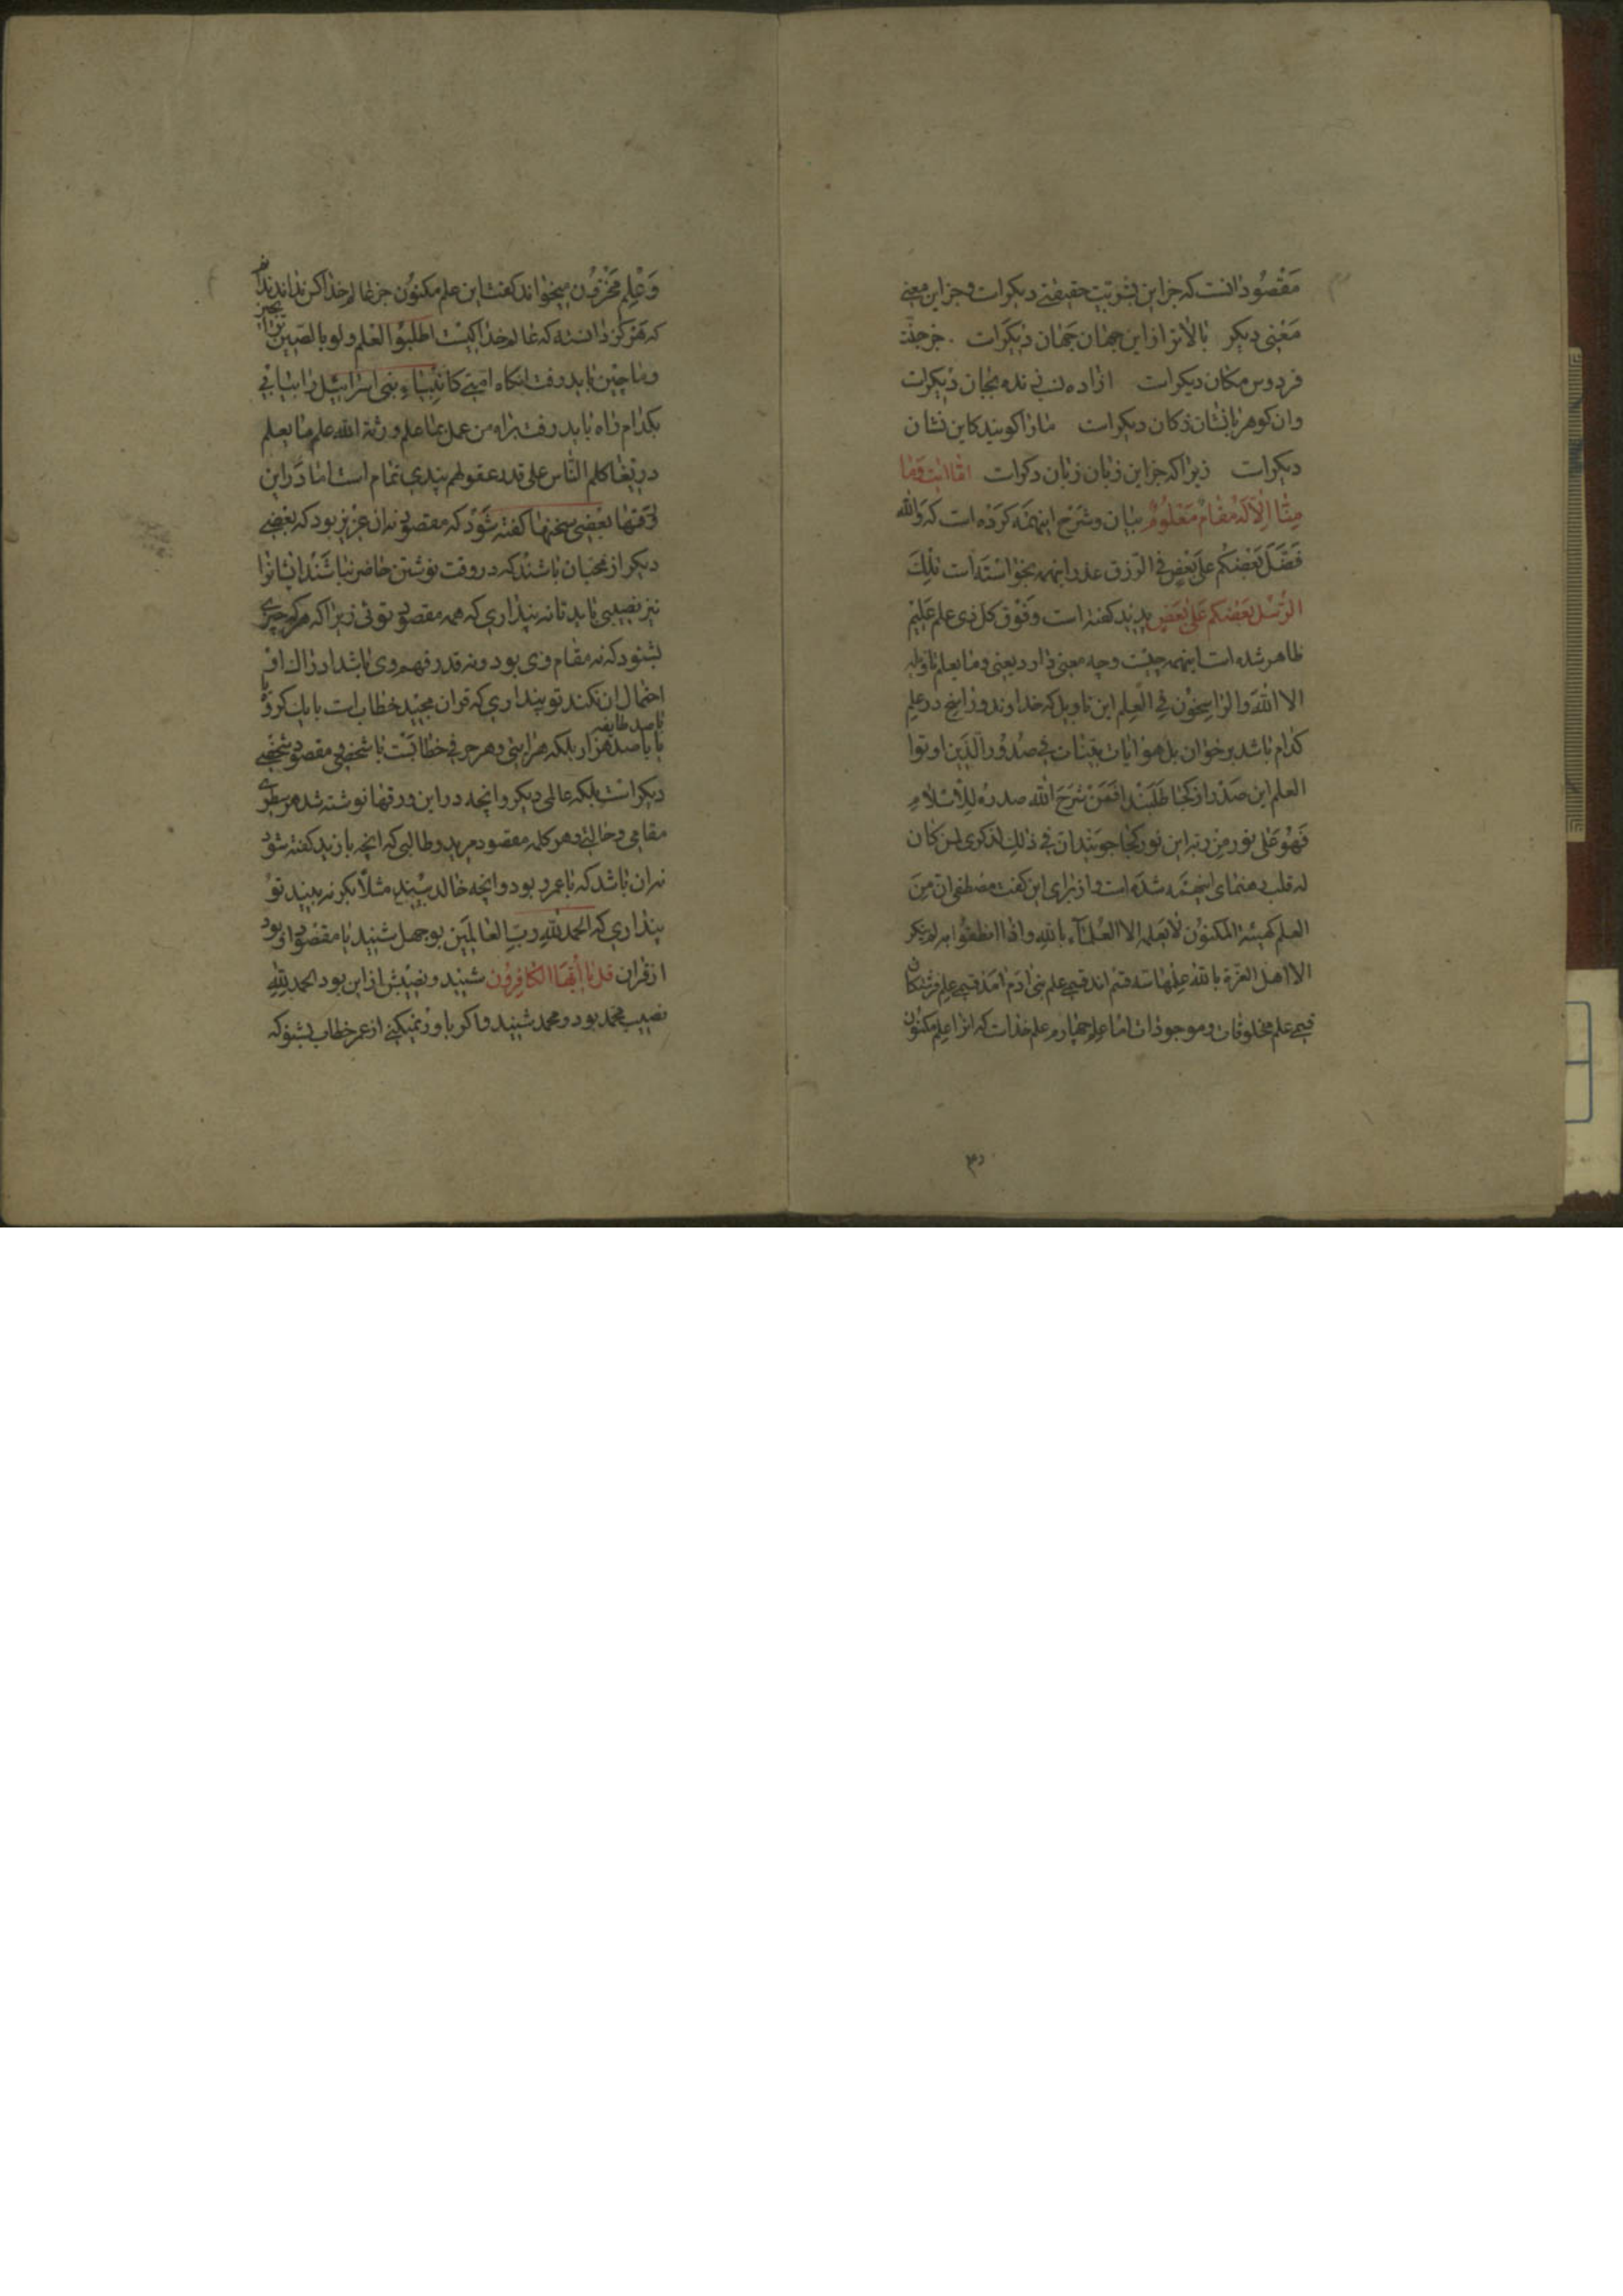 مقصود آنست که جز این بشریت حقیقتی دیکرات و جز این معنی
معنی دیکر بالاتر از این جهان جهان دیکرات . جز جنت
فردوس مکان دیکرات ازاده نسب زنده بجان دیکرات
وان کوهر پانشان ز کان دیکرات ما را کویند کاین نشان
دیکرات زیرا که جز این زبان زبان دکرات اما ایت وما
منا الا له مقام معلوم بیان و شرح اینهمه کرده است که والله
فضل بعضکم علی بعض فی الرزق عذر اینهمه بخواسته است تلک
الرسل بعضکم علی بعض پدید کفته است وفوق کل ذی علم علیم
ظاهر شده است اینهمه چیست و چه معنی دارد یعنی وما یعلم تاویله
الا الله والراسخون فی العلم این تاویل که خداوند و راسخ در علم
کدام باشد بر خوان بل هو ایات بینات فی صدور الذین اوتوا
العلم این صدر از کجا طلبند افمن شرح الله صدره للاسلام
فهو علی نور من ربه این نور کجا جویند ان فی ذلک لذکری لمن کان
له قلب رهنمای اینهمه شده است و از برای این کفت مصطفی ان من
العلم کهیئة المکنون لا یعلمه الا العلماء بالله واذا انطقوا به لم ینکر
الا اهل العزة بالله علمها سه قسم اند قسمی علم بنی ادم امد قسمی علم فرشتکان
قسمی علم مخلوقات و موجودات اما علم چهارم علم خدات که انرا علم مکنون
وعلم مخزون میخوانند کفت این علم مکنون جز عالم خدا کس نداند ندانم
که هرکز دانسته که عالم خدا کیست اطلبوا العلم ولو بالصین ترا بچین
و ماچین باید رفت انکاه امتی کانبیاء بنی اسرائیل را بیابی
بکدام راه باید رفت براه من عمل بما علم ورثه الله علم ما یعلم
دریغا کلم الناس علی قدر عقولهم پندی تمام است اما در این
ورقها بعضی سخنها کفته شود که مقصود نه ان عزیز بود که بعضی
دیکر از محبان باشند که در وقت نوشتن حاضر نباشند ایشانرا
نیز نصیبی باید تا نه پنداری که همه مقصود توئی زیرا که هر که چیزی
بشنود که نه مقام وی بود و نه قدر فهم وی باشد ادراک ان
احتمال ان نکند تو پنداری که قران مجید خطاب است با یک کروه یا
با صد طایفه
یا با صد هزار بلکه هر ایتی و هر حرفی خطابیست با شخصی و مقصود شخصی
دیکرات بلکه عالمی دیکر وانچه در این ورقها نوشته شد هر سطری
مقامی و حالتی و هر کلمه مقصود مریدی و طالبی که انچه با زید کفته شود
نه ان باشد که با عمرو بود وانچه خالد بیند مثلا بکر نه بیند تو
پنداری که الحمد لله رب العالمین بوجهل شنید یا مقصود او بود
از قران قل یا ایها الکافرون شنید و نصیبش از این بود الحمد لله
نصیب محمد بود و محمد شنید و اکر باور نمیکنی از عمر خطاب بشنو که